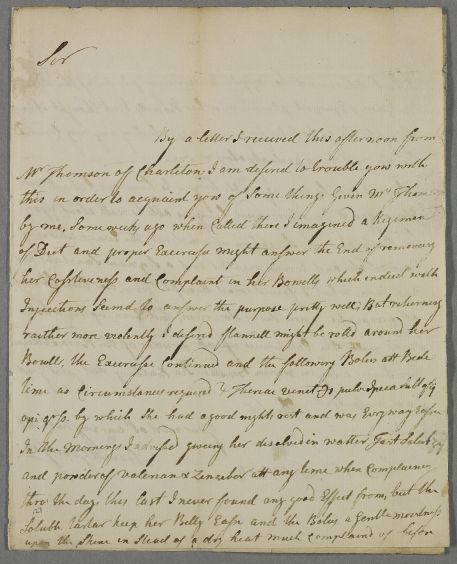 Sir
By a letter I received this afternoon from
Mr Thomson of Charleton I am desired to trouble yow with
this in order to acquaint yow of Some things Given Mrs Thomson
by me, Some weeks ago when Called there I imagined a Regimen
of Diet and proper Excercise might answer the End of removeing
her Costiveness and Complaint in her Bowells which indeed with
Injections Seemd to answer the purpose pretty well; But returning
raither more violently I desired flannell might be rolld around her
Bowells, the Excercise Continued and the following Bolus att Bed
time as Circumstances required
opi by which She had a good nights rest and was Evry way Easie
In the Mornings I advised giveing her disolved in watter Tart Solub
and powders of valerian & Zinziber att any time when Complaining
thro' the day. this last I never found any good Effect from, but the
Soluble Tartar keep her Belly Easie and the Bolus a Gentle moistness
upon the Skine in Stead of a dry heat much Complaind of befor